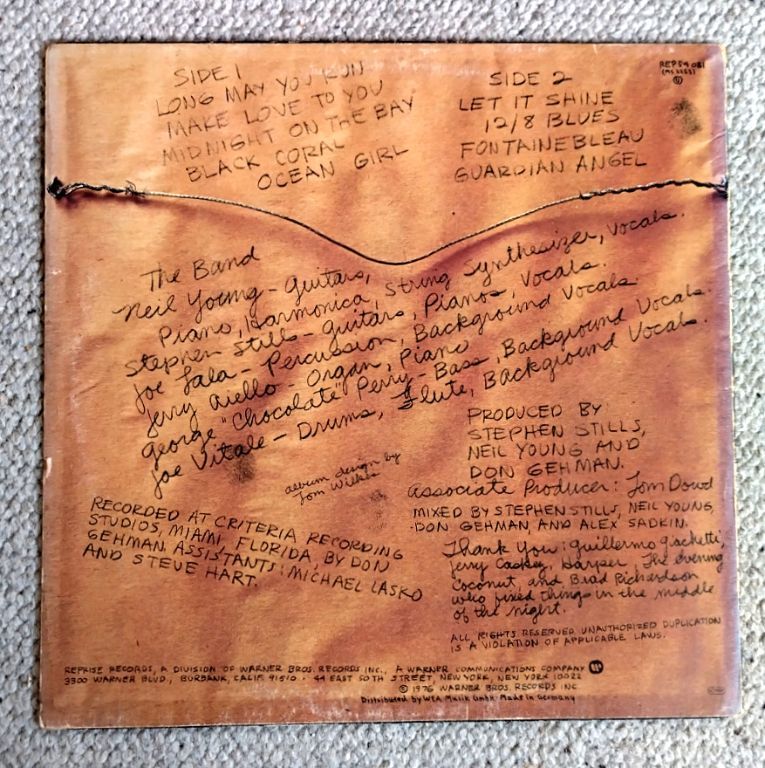 SIDE 1
LONG MAY YOU RUN
MAKE LOVE TO YOU
MIDNIGHT ON THE BAY
BLACK CORAL
OCEAN GIRL
SIDE 2
LET IT SHINE
12/8 BLUES
FONTAINEBLEAU
GUARDIAN ANGEL
REP 54 081
(MS 2253)
The Band
Neil Young - Guitars,
Piano, Harmonica, String Synthesizer, Vocals.
Stephen Stills - Guitars, Pianos, Vocals.
Joe Lala - Percussion, Background Vocals.
Jerry Aiello - Organ, Piano
George "Chocolate" Perry - Bass, Background Vocals.
Joe Vitale - Drums, Flute, Background Vocals.
album design by
Tom Wilkes
PRODUCED BY
STEPHEN STILLS,
NEIL YOUNG AND
DON GEHMAN.
Associate Producer: Tom Dowd
MIXED BY STEPHEN STILLS, NEIL YOUNG,
DON GEHMAN, AND ALEX SADKIN.
RECORDED AT CRITERIA RECORDING
STUDIOS, MIAMI, FLORIDA, BY DON
GEHMAN. ASSISTANTS: MICHAEL LASKO
AND STEVE HART.
Thank You: Guillermo Giachetti,
Jerry Caskey, Harper, The evening
Coconut, and Brad Richardson
who fixed things in the middle
of the night.
ALL RIGHTS RESERVED UNAUTHORIZED DUPLICATION
IS A VIOLATION OF APPLICABLE LAWS.
REPRISE RECORDS, A DIVISION OF WARNER BROS. RECORDS INC., A WARNER COMMUNICATIONS COMPANY
3300 WARNER BLVD., BURBANK, CALIF. 91510 · 44 EAST 50TH STREET, NEW YORK, NEW YORK 10022
© 1976 WARNER BROS. RECORDS INC
Distributed by WEA Musik GmbH Made in Germany